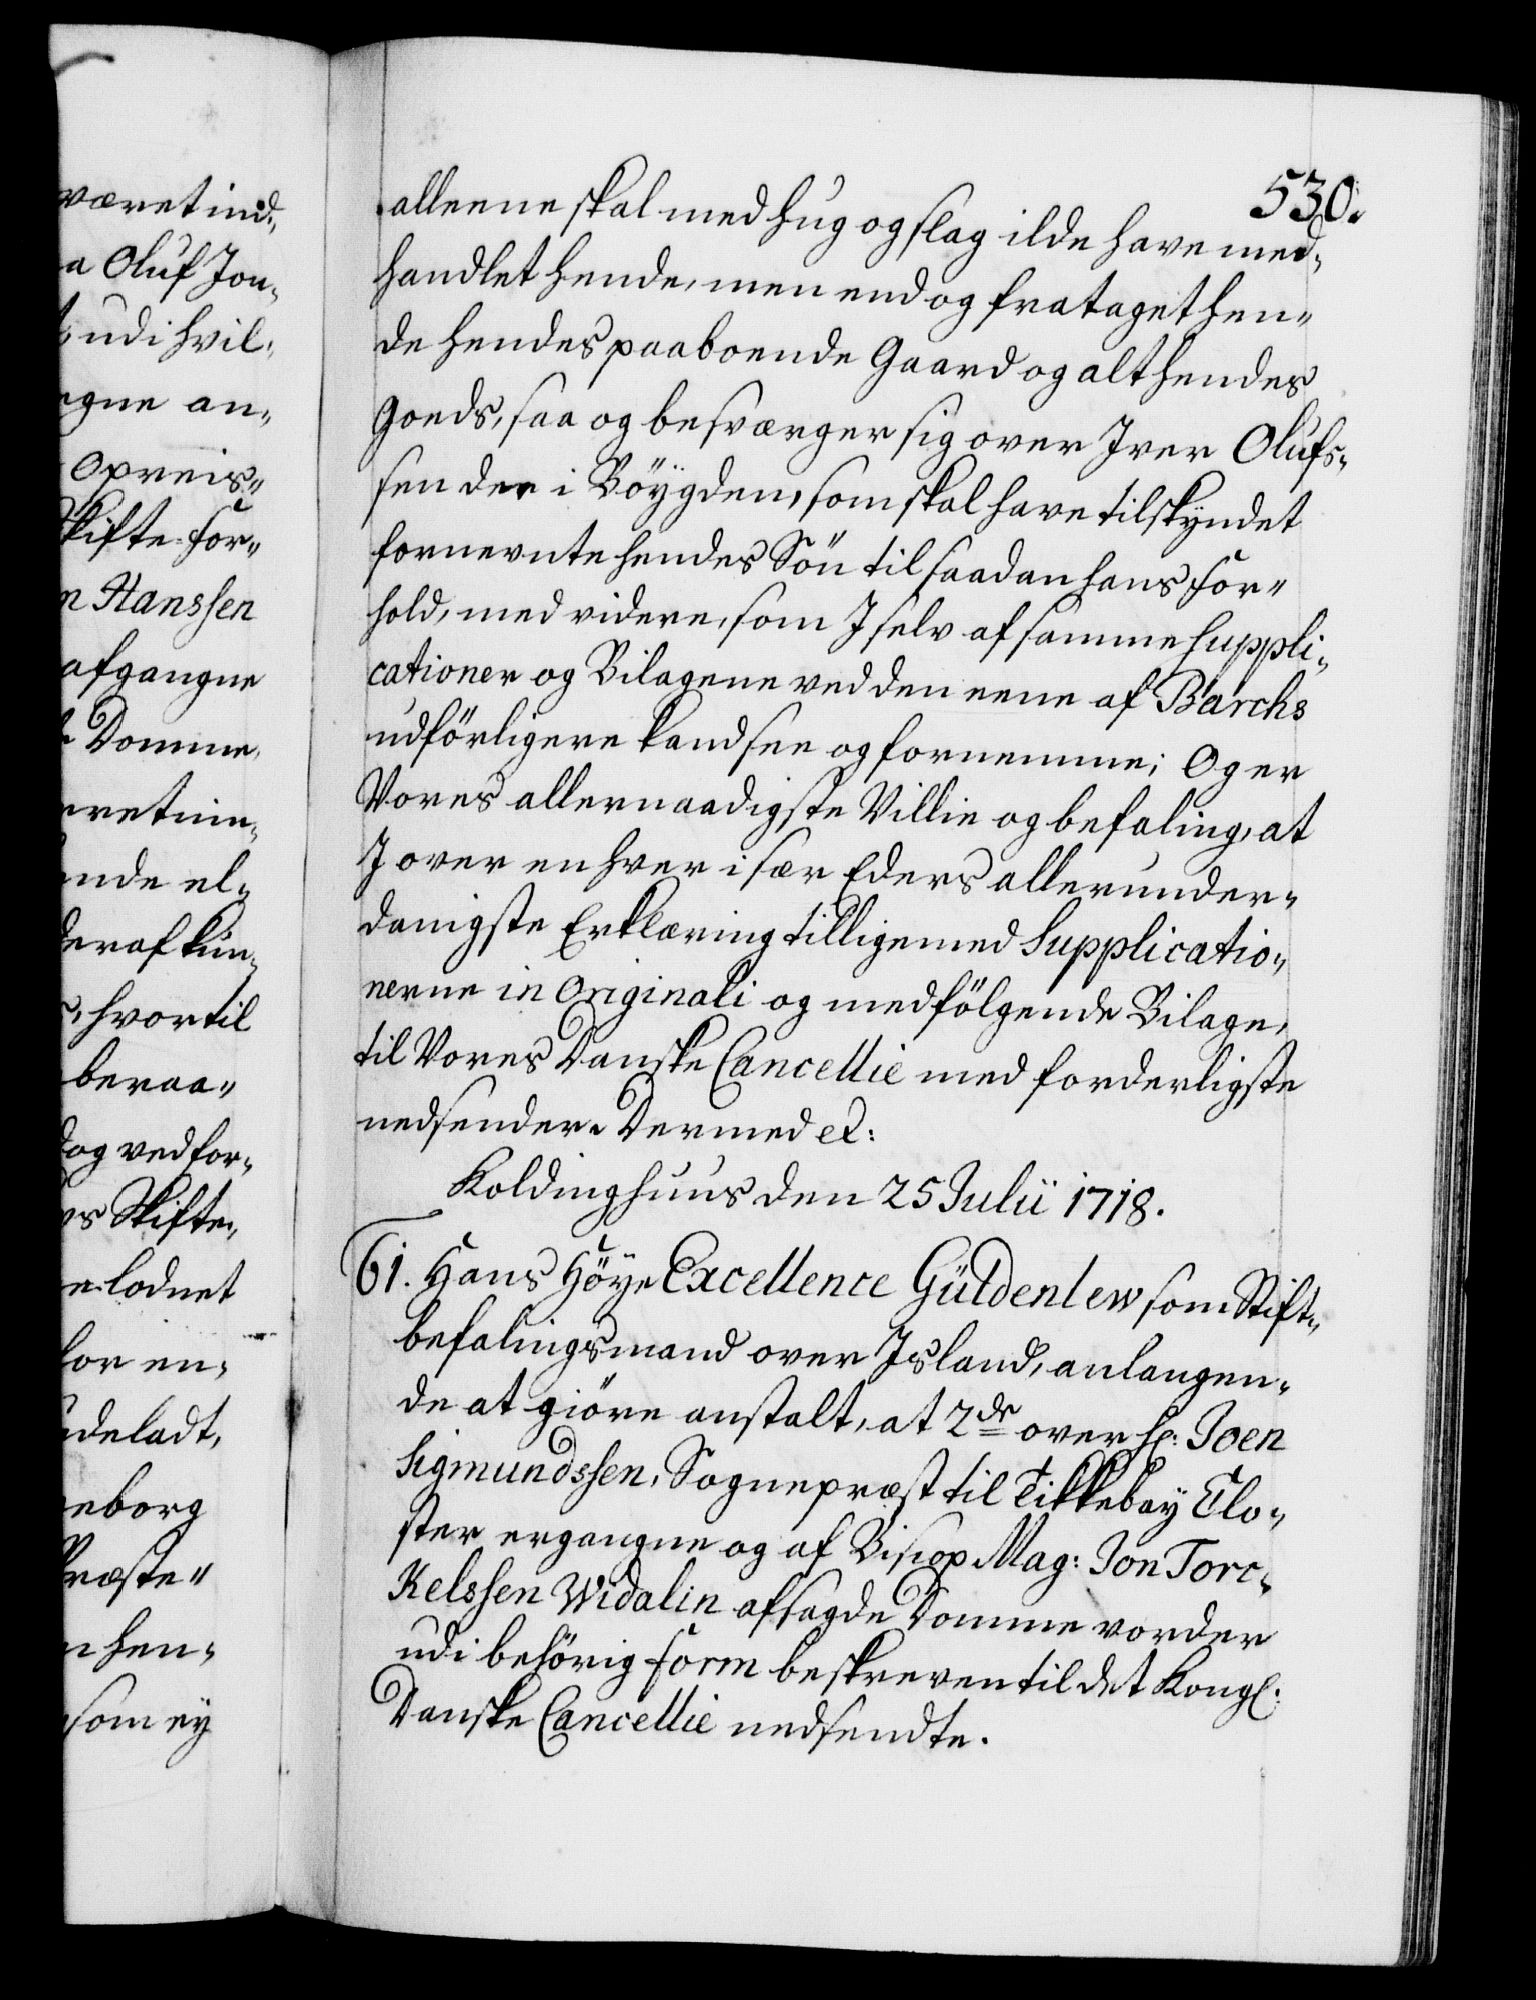 været ind„
a Oluf Jon„
t, udi hvil„
egne an„
Opreis„
Skifte-For„
n Hanssen
afgangne
t Domme,
rretnin„
ende el„
deraf kun„
s, hvortil
beraa„
dog ved for„
ns Skifte„
e lodnet
for en„
udeladt,
neborg
Præste„
n hen„
som ey
530.
alleene skal med hug og slag ilde have med„
handlet hende, men endog frataget hen„
de hendes paaboende Gaard og alt hendes
Goeds, saa og besværger sig over Iver Olufs„
sen der i Böÿgden, som skal have tilskyndet
fornevnte hendes Sön til saadan hans For„
hold, med videre, som I selv af samme Suppli„
cationer og Bilagene ved den eene af Barchs
udförligere kand see og fornemme; Og er
Vores allernaadigste Villie og befaling, at
I over en hver især Eders allerunder„
danigste Erklæring tilligemed Supplicatio„
nerne in Originali og medfölgende Bilage,
til Vores Danske Cancellie med forderligste
nedsender. Dermed etc:
Koldinghuus den 25 Julii 1718.
61. Hans Höye Excellence Güldenlew som Stift„
befalingsmand over Island, anlangen„
de at giöre anstalt, at 2de over Hr: Joen
Sigmundssen, Sognepræst til Tikkebay Clo„
ster ergangne og af Biscop Mag: Jon Torc„
Kelssen Widalin afsagde Domme vorder
udi behörig Form beskreven til det Kongl:
Danske Cancellie nedsendte.